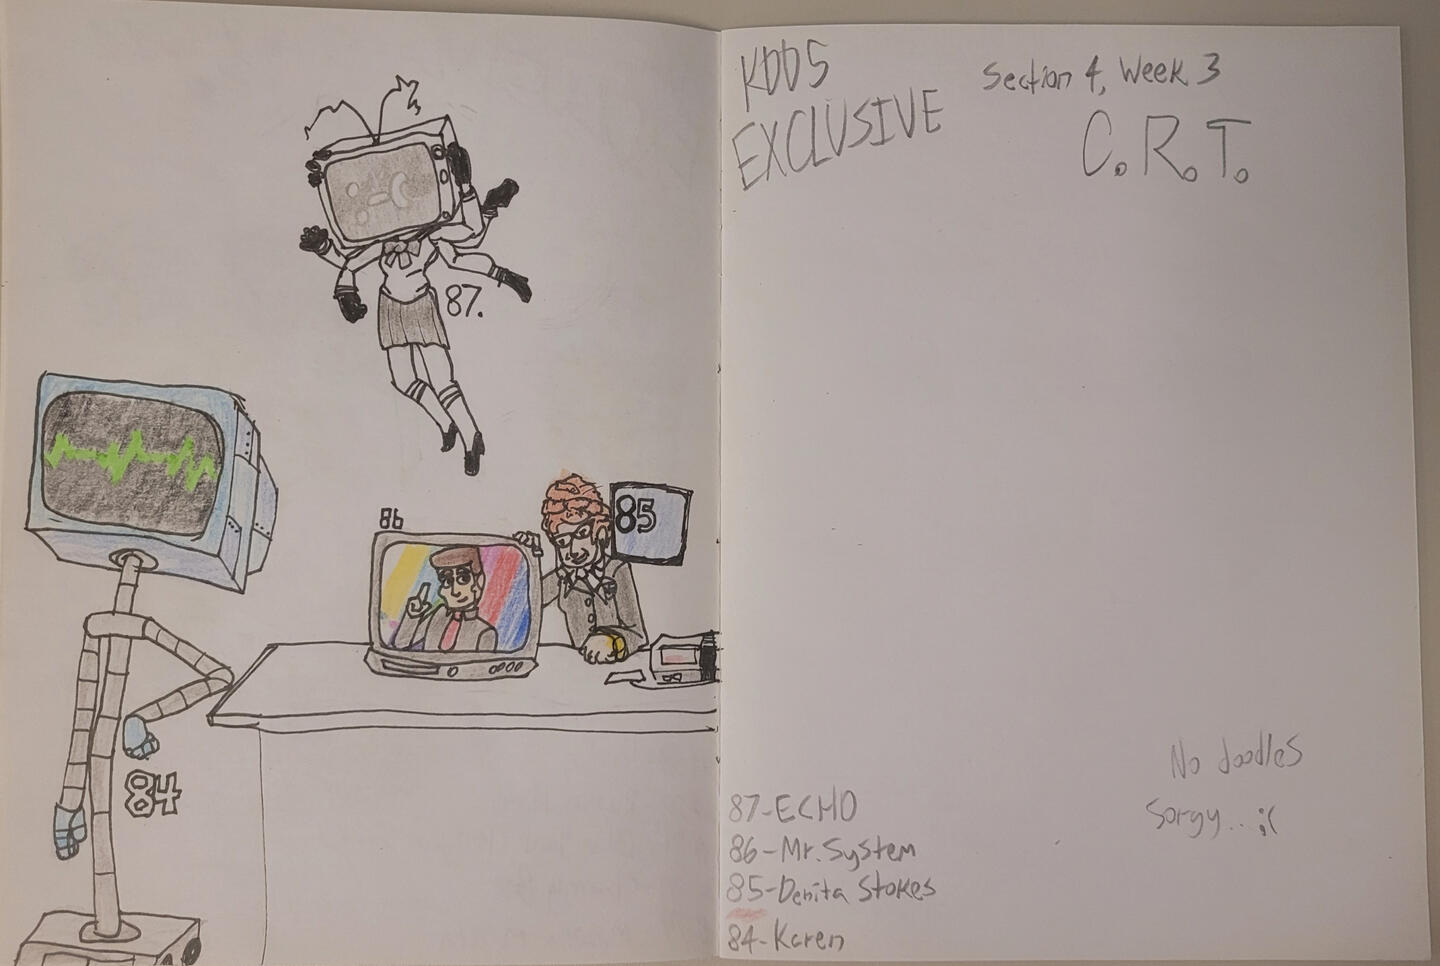 87.
86
85
84
KDD5
EXCLUSIVE
Section 4, Week 3
C.R.T.
No doodles
Sorgy.. ;(
87-ECHO
86-Mr. System
85-Denita Stokes
84-Karen